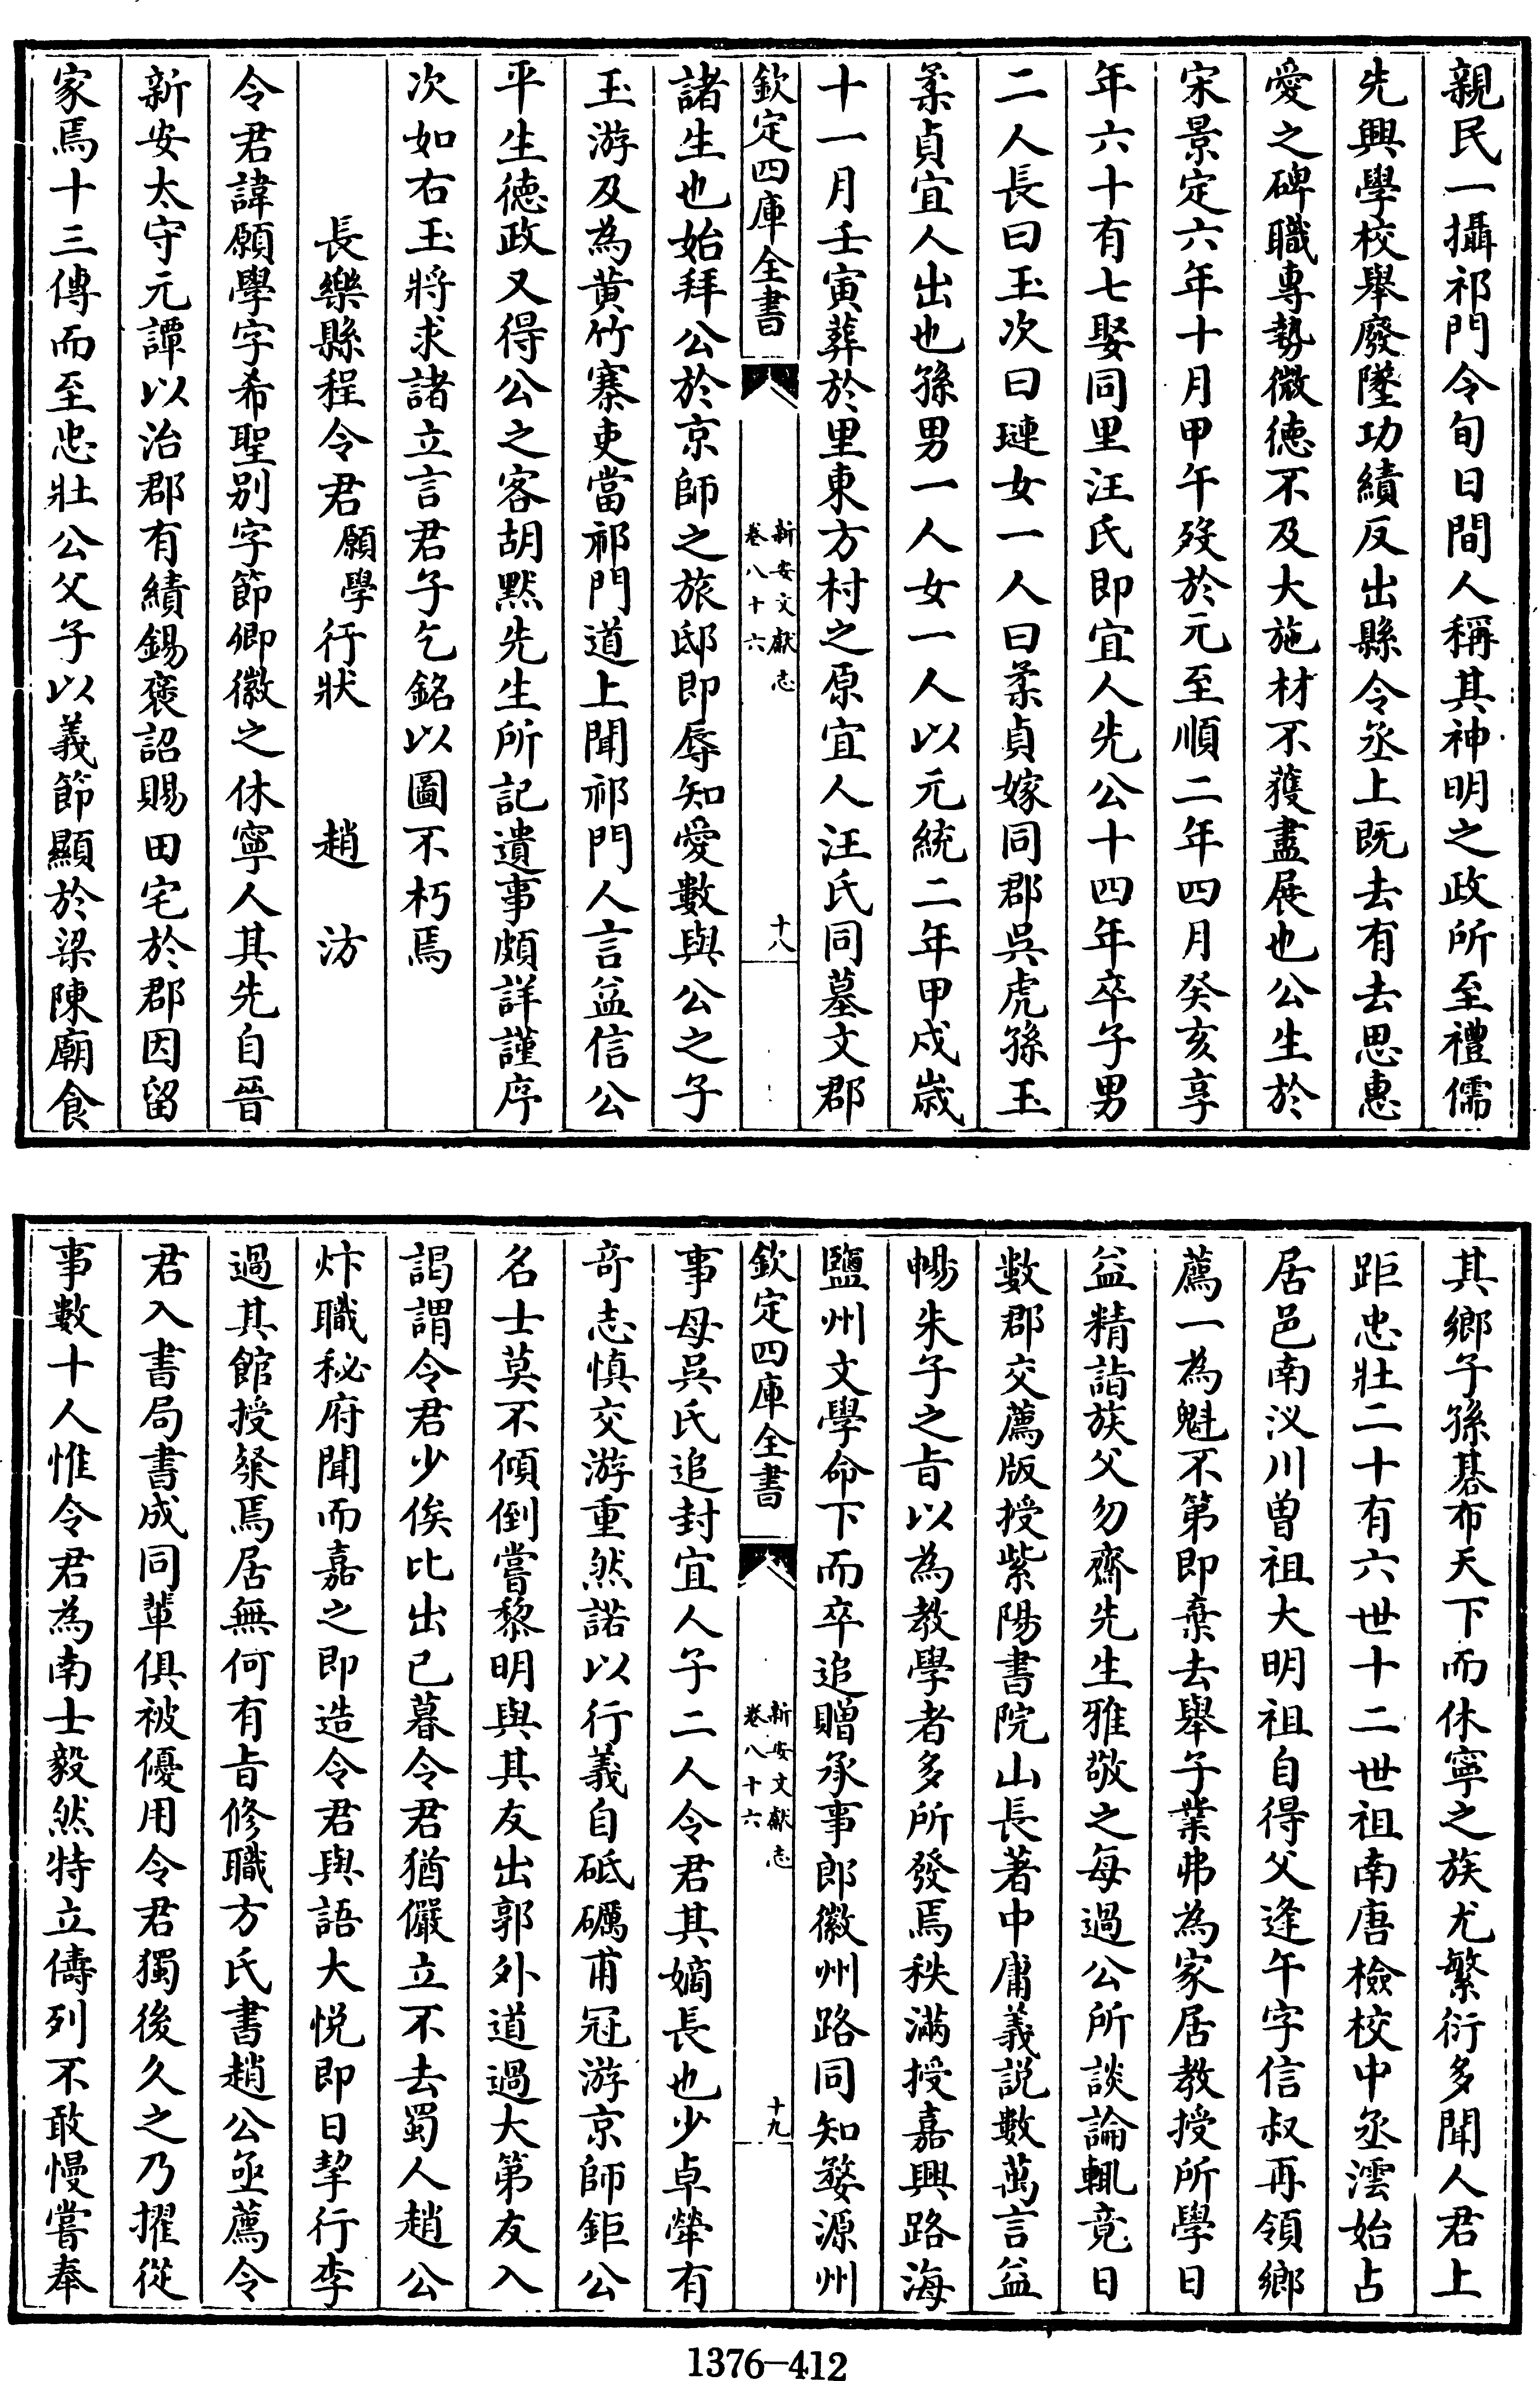 親民一攝祁門令旬日間人稱其神明之政所至禮儒
先興學校舉廢墜功績反出縣令丞上既去有去思惠
愛之碑職專勢微徳不及大施材不獲盡展也公生於
宋景定六年十月甲午殁於元至順二年四月癸亥享
年六十有七娶同里汪氏即宜人先公十四年卒子男
二人長曰玉次曰璉女一人曰柔貞嫁同郡吳虎孫玉
柔貞宜人出也孫男一人女一人以元統二年甲戌歳
十一月壬寅葬於里東方村之原宜人汪氏同墓文郡
欽定四庫全書
新安文獻志
卷八十六
十八
諸生也始拜公於京師之旅邸即辱知愛數與公之子
玉游及為黃竹寨吏當祁門道上聞祁門人言益信公
平生徳政又得公之客胡黙先生所記遺事頗詳謹序
次如右玉將求諸立言君子乞銘以圖不朽焉
長樂縣程令君願學行狀 趙汸
令君諱願學字希聖别字節卿徽之休寧人其先自晉
新安太守元譚以治郡有績錫褒詔賜田宅於郡因留
家焉十三傳而至忠壯公父子以義節顯於梁陳廟食
其鄉子孫碁布天下而休寧之族尤繁衍多聞人君上
距忠壯二十有六世十二世祖南唐檢校中丞澐始占
居邑南汊川曾祖大明祖自得父逢午字信叔再領鄉
薦一為魁不第即棄去舉子業弗為家居教授所學日
益精詣族父勿齋先生雅敬之每過公所談論輒竟日
數郡交薦版授紫陽書院山長著中庸義説數萬言益
暢朱子之旨以為教學者多所發焉秩滿授嘉興路海
鹽州文學命下而卒追贈承事郎徽州路同知婺源州
欽定四庫全書
新安文獻志
卷八十六
十九
事母吳氏追封宜人子二人令君其嫡長也少卓犖有
奇志慎交游重然諾以行義自砥礪甫冠游京師鉅公
名士莫不傾倒嘗黎明與其友出郭外道過大第友入
謁謂令君少俟比出已暮令君猶儼立不去蜀人趙公
炞職秘府聞而嘉之即造令君與語大悦即日挈行李
過其館授粲焉居無何有旨修職方氏書趙公亟薦令
君入書局書成同軰俱被優用令君獨後久之乃擢從
事數十人惟令君為南士毅然特立儔列不敢慢嘗奉
1376—412